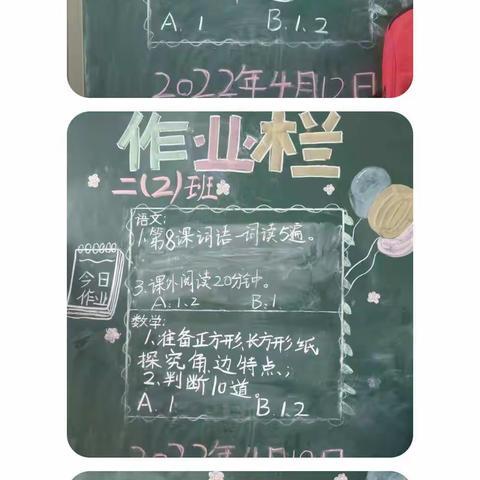 A.1 B.1、2
2022年4月12日
作业栏
二(2)班
语文:
1.第8课词语一词读5遍。
3.课外阅读20分钟。
A:1、2 B:1
今日
作业
数学:
1、准备正方形、长方形纸
探究角、边特点;
2、判断10道。
A.1 B.1.2